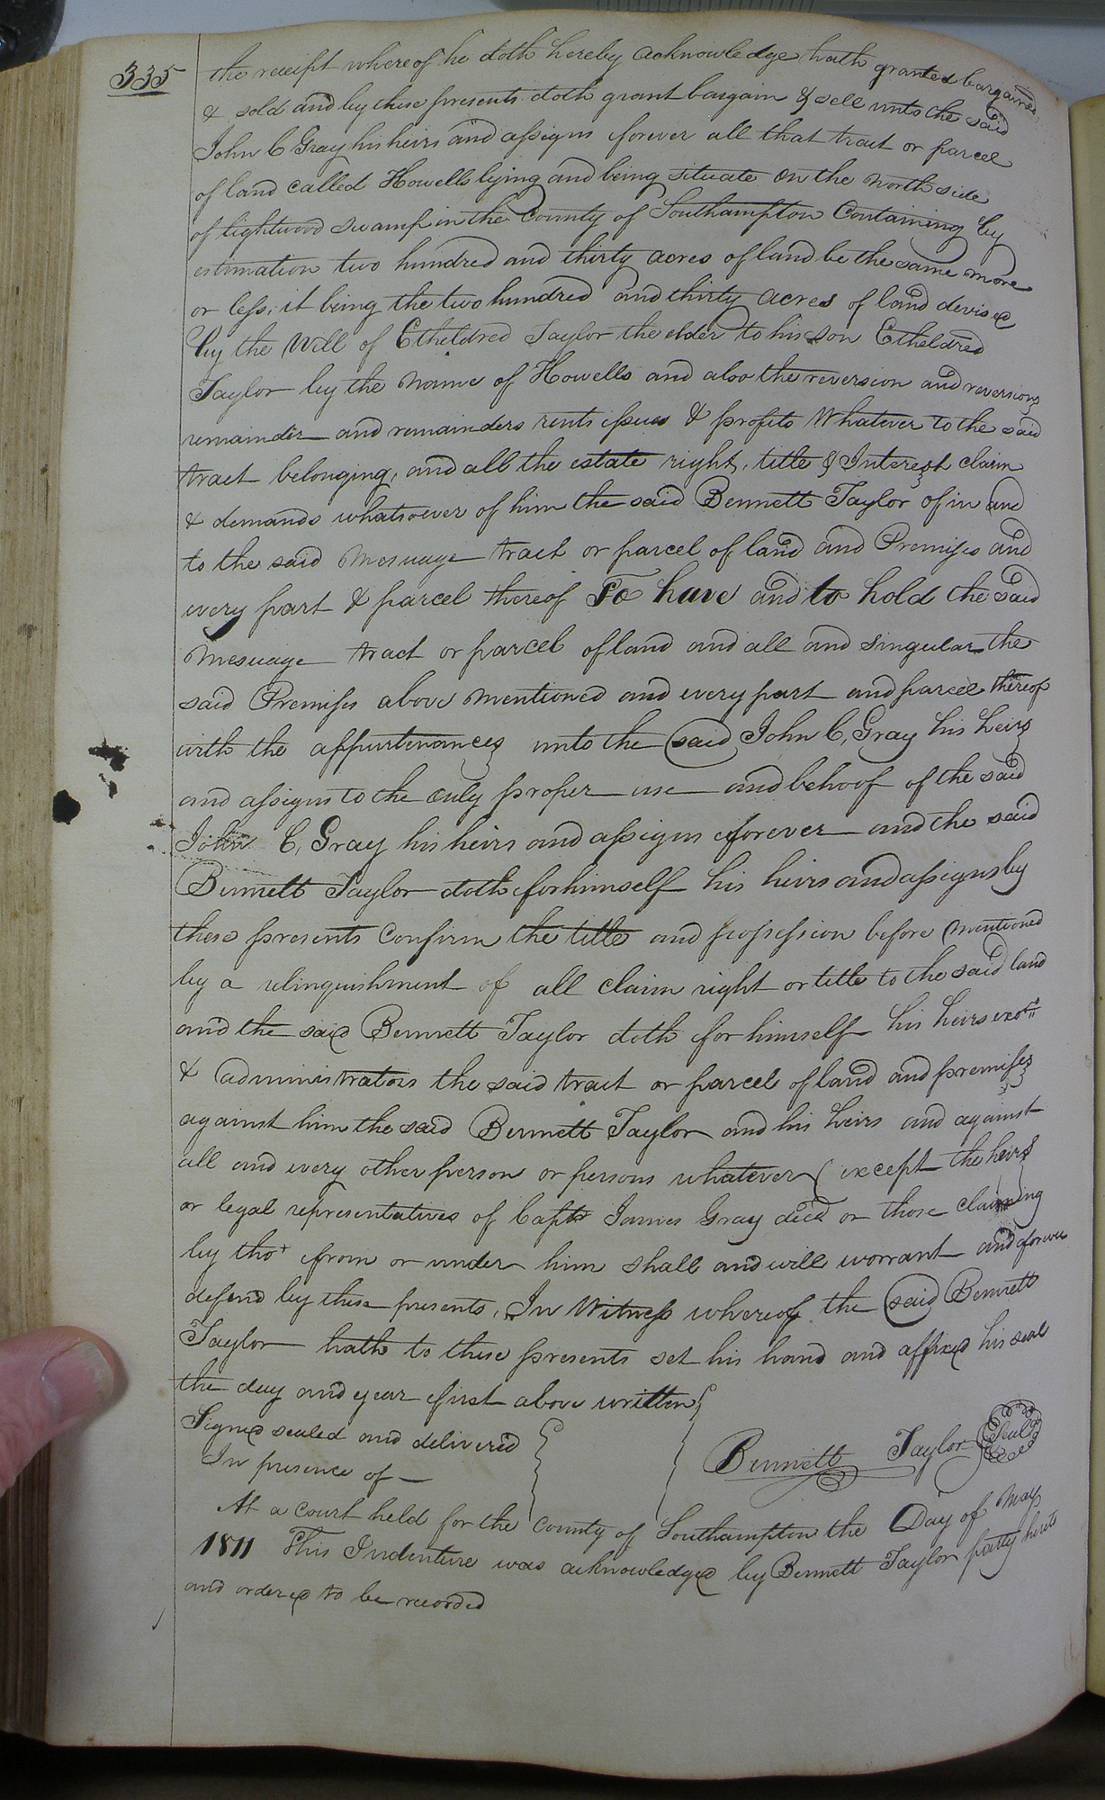 335
the receipt whereof he doth hereby acknowledge hath granted bargained
& sold and by these presents doth grant bargain & sell unto the said
John C Gray his heirs and assigns forever all that tract or parcel
of land called Howells lying and being situate on the North side
of lightwood swamp in the County of Southampton Containing by
estimation two hundred and thirty acres of land be the same more
or less, it being the two hundred and thirty acres of land devised
by the Will of Etheldred Taylor the elder to his son Etheldred
Taylor by the Name of Howells and also the reversion and reversions
remainder and remainders rents issues & profits Whatever to the said
tract belonging, and all the estate right, title & Interest claim
& demands whatsoever of him the said Bennett Taylor of in and
to the said Mesuage tract or parcel of land and Premises and
every part & parcel thereof To have and to hold the said
Mesuage tract or parcel of land and all and singular the
said Premises above mentioned and every part and parcel thereof
with the appurtenances unto the said John C, Gray his heirs
and assigns to the only proper use and behoof of the said
John C, Gray his heirs and assigns forever and the said
Bennett Taylor doth for himself his heirs and assigns by
these presents Confirm the title and possession before mentioned
by a relinquishment of all claim right or title to the said land
and the said Bennett Taylor doth for himself his heirs exors
& administrators the said tract or parcel of land and premises
against him the said Bennett Taylor and his heirs and against
all and every other person or persons whatever (except the heirs
or legal representatives of Capt James Gray decd or those claiming
by tho' from or under him shall and will worrant and forever
defend by these presents, In Witness whereof the said Bennett
Taylor hath to these presents set his hand and affixed his seal
the day and year first above written
Signed sealed and delivered
In presence of
Bennett Taylor Seal
At a court held for the County of Southampton the Day of May
1811 This Indenture was acknowledged by Bennett Taylor party hereto
and ordered to be recorded